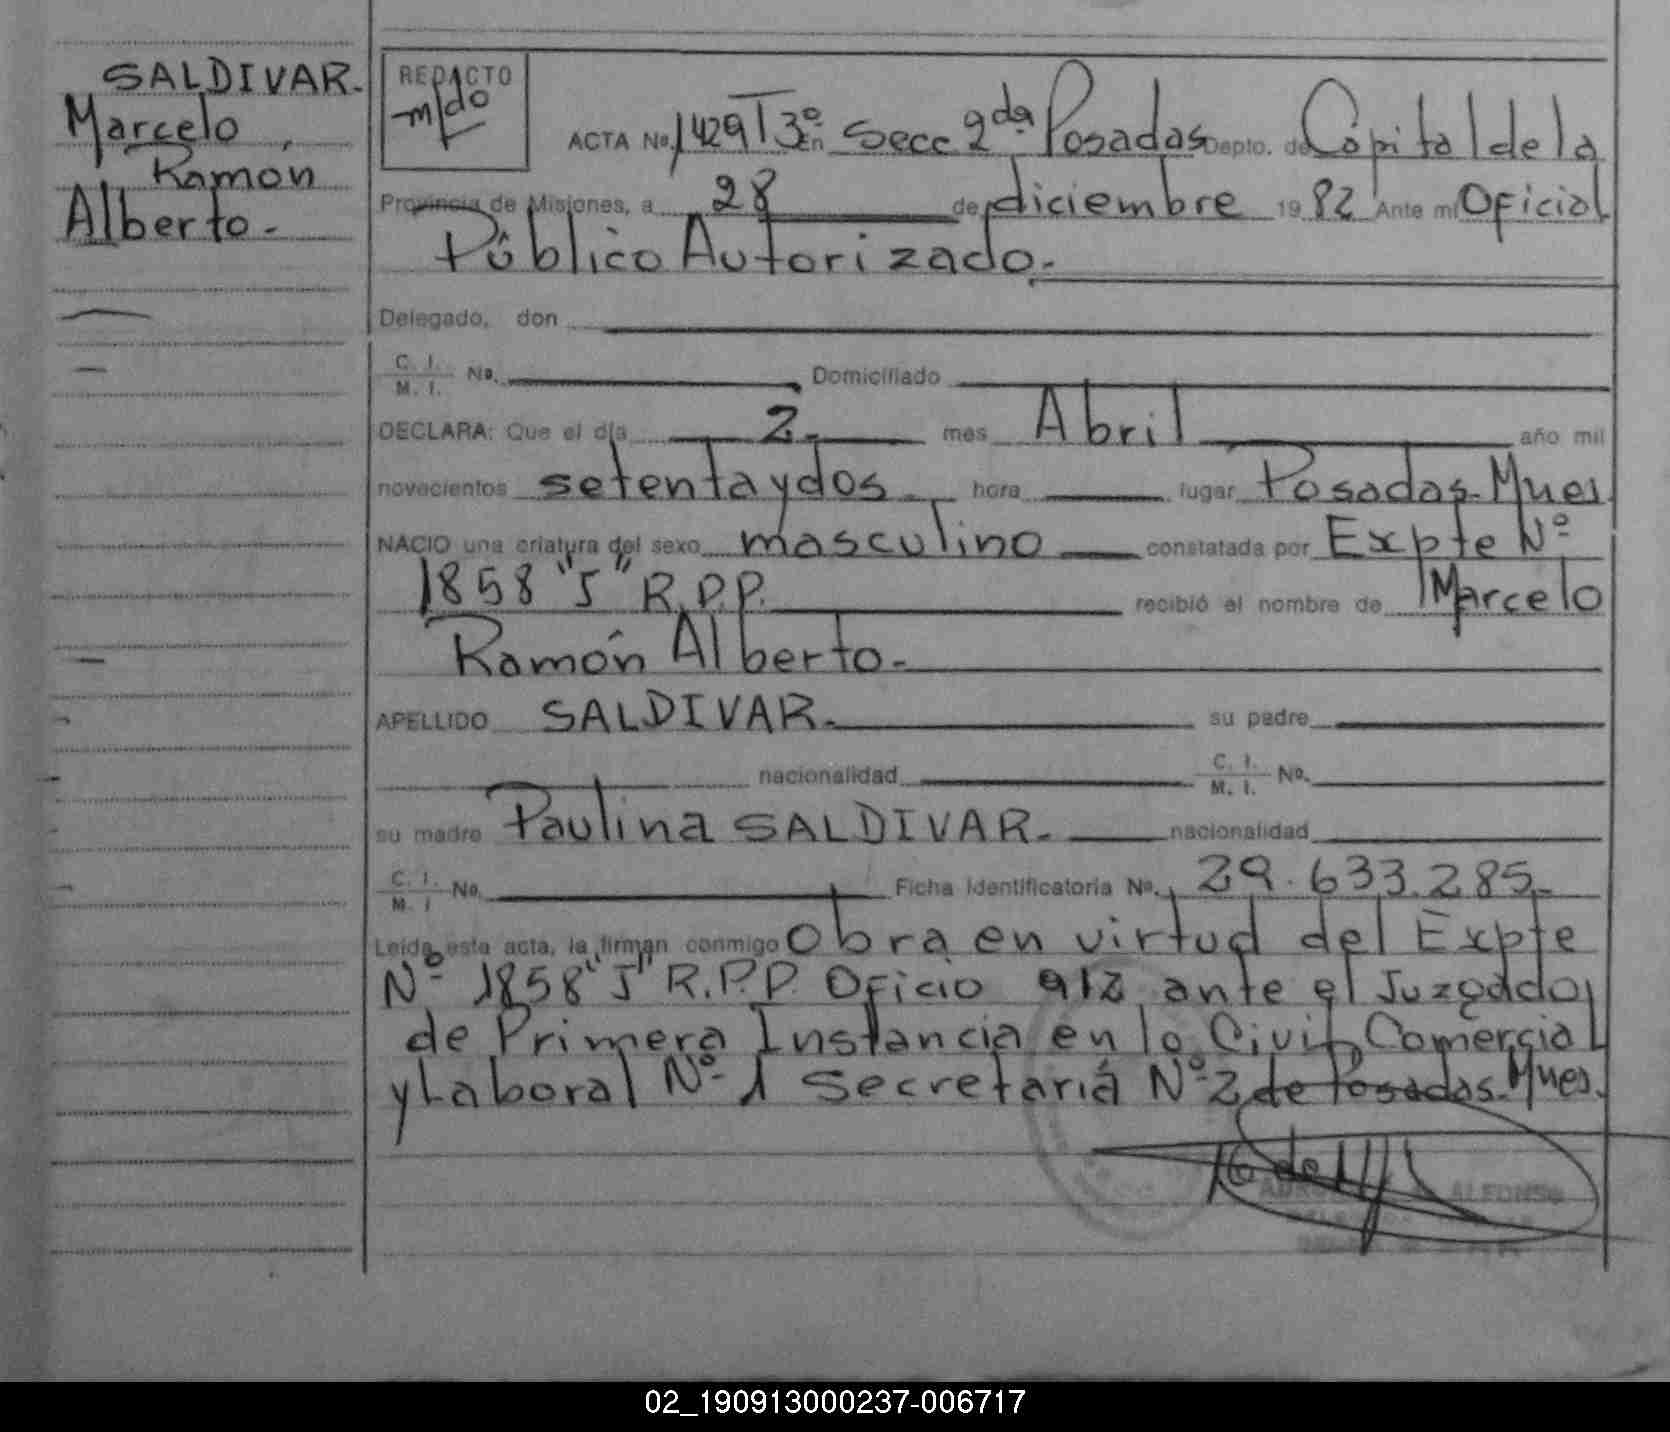 SALDIVAR.
Marcelo
Ramón
Alberto.-
REDACTO
ACTA No. 1429 T3º en Secc 2da Posadas Depto. de Capital de la
Provincia de Misiones, a 28 de diciembre 1982 Ante mi Oficial
Público Autorizado.-
Delegado, don
C. I. / M. I. No. Domiciliado
DECLARA: Que el día 2.- mes Abril año mil
novecientos setentaydos hora lugar Posadas. Mnes
NACIO una criatura del sexo masculino constatada por Expte Nº
1858 "J" R.P.P. recibió el nombre de Marcelo
Ramón Alberto.-
APELLIDO SALDIVAR.- su padre
nacionalidad C. I. / M. I. No.
su madre Paulina SALDIVAR.- nacionalidad
C. I. / M. I No. Ficha Identificatoria No. 29.633.285.-
Leída esta acta, la firman conmigo Obra en virtud del Expte
Nº 1858 "J" R.P.P. Oficio 912 ante el Juzgado
de Primera Instancia en lo Civil, Comercial
y Laboral Nº 1 Secretaría Nº 2 de Posadas. Mnes.
ALFONSO
02_190913000237-006717